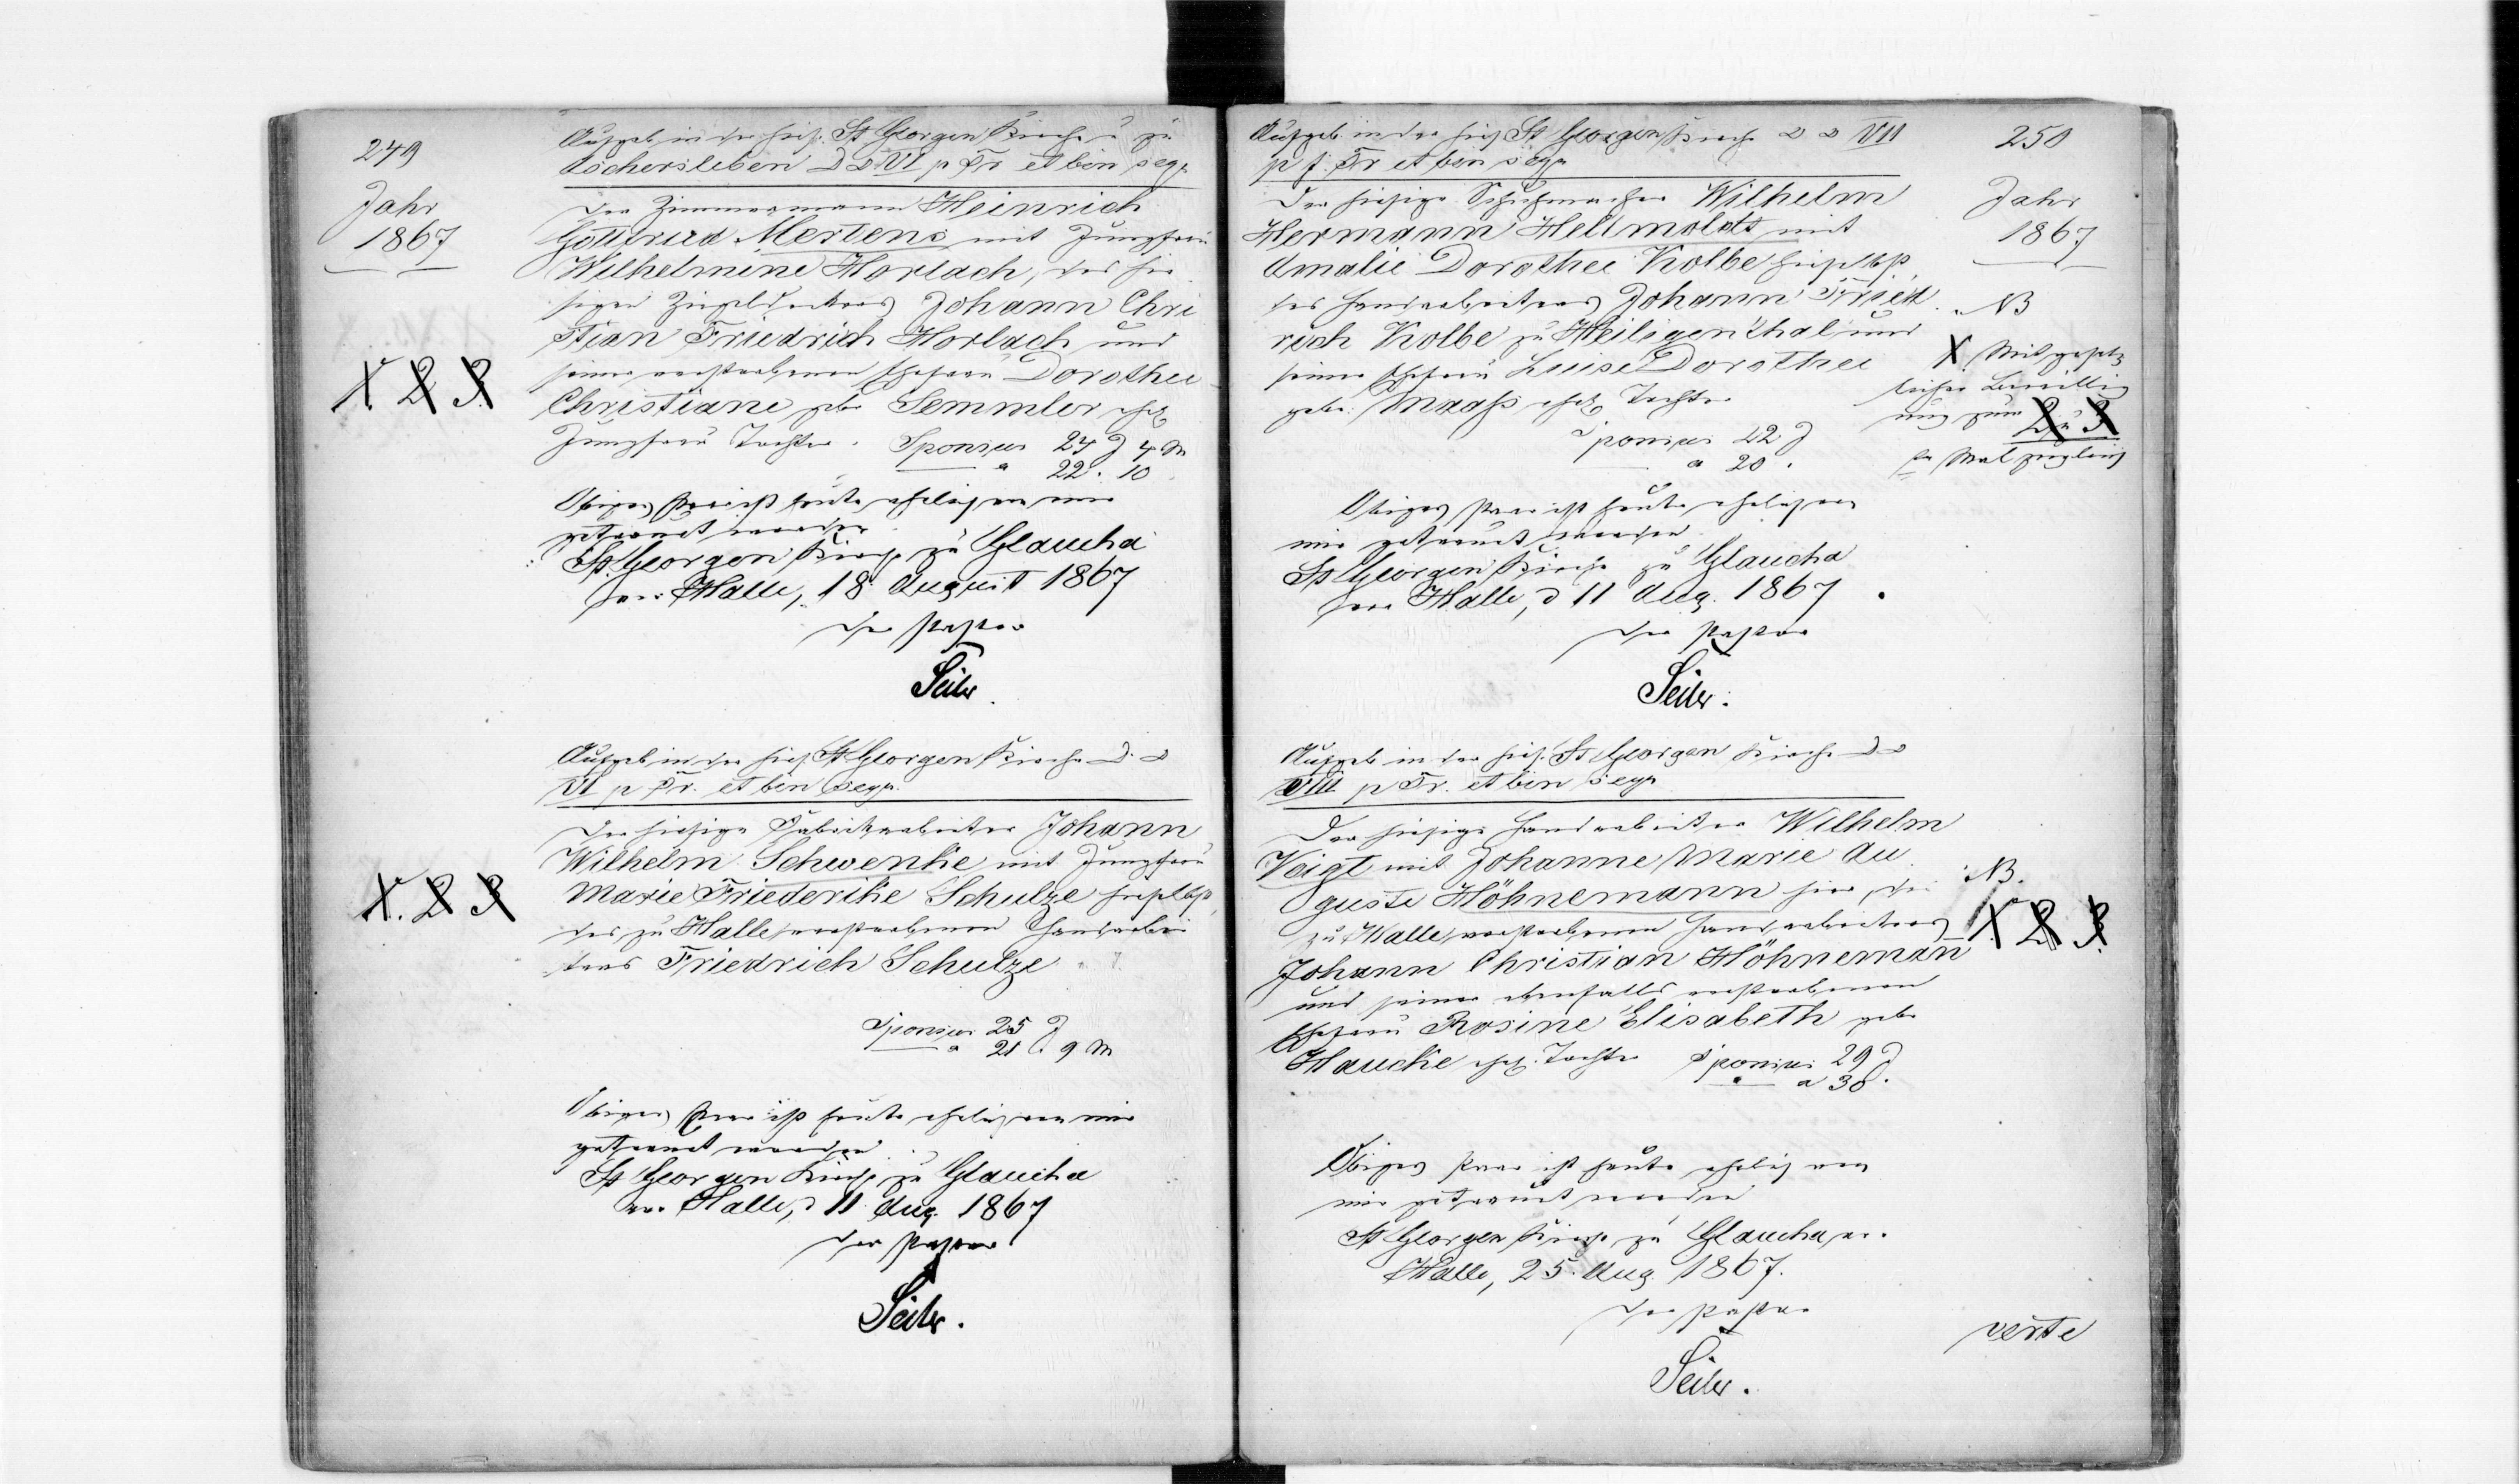 249
Jahr
1867
Aufgeb in der hies. St Georgen Kirche u zu
Aschersleben D D VI p Tr et bin seq.
Der Zimmermann Heinrich
Gottfried Mertens mit Jungfrau
Wilhelmine Horlach, des hie
sigen Ziegeldeckers Johann Chri
stian Friedrich Horlach und
seiner verstorbenen Ehefrau Dorothee
Christiane geb. Semmler ehel
Jungfrau Tochter. Sponsus 24 J 4 M
a 22. 10
1 2 3.
Obiges Paar ist heute ehelich von mir
getraut worden.
St. Georgen Kirche zu Glaucha
vor Halle, 18. August 1867
Der Pastor
Seiler.
Aufgeb in der hies. St Georgen Kirche D. D
VI p Tr. et bin seq.
Der hiesige Fabrikarbeiter Johann
Wilhelm Schwenke mit Jungfrau
Marie Friederike Schulze hieselbst,
des zu Halle verstorbenen Handarbei
ters Friedrich Schulze
1. 2 3
Sponsus 25 J
a 21. 9 M
Obiges Paar ist heute ehelich von mir
getraut worden
St Georgen Kirche zu Glaucha
vor Halle, d 11 Aug. 1867
Der Pastor
Seiler.
250
Jahr
1867
Aufgeb. in der hies St Georgen Kirche D D VII
p f. Tr et bin seq.
Der hiesige Schuhmacher Wilhelm
Hermann Hellmoldt mit
Amalie Dorothee Kolbe hieselbst,
des Handarbeiters Johann Fried
rich Kolbe zu Heiligenthal und
seiner Ehefrau Luise Dorothee
geb. Maaß ehel Tochter
Sponsus 22 J
a 20.
NB
1 Mit gesetz
licher Bewillig
ung zum 2 u 3
Mal zugleich
Obiges Paar ist heute ehelich von
mir getraut worden.
St Georgen Kirche zu Glaucha
vor Halle, d 11 Aug. 1867.
Der Pastor
Seiler.
Aufgeb in der hies. St Georgen Kirche D D
VIII p Tr. et bin seq.
Der hiesige Handarbeiter Wilhelm
Voigt mit Johanne Marie Au
guste Höhnemann hier, des
zu Halle verstorbenen Handarbeiters
Johann Christian Höhneman̄
und seiner ebenfalls verstorbenen
Ehefrau Rosine Elisabeth geb.
Hauche ehel. Tochter Sponsus 29 J
a 30.
NB.
1 2 3.
Obiges Paar ist heute ehelich von
mir getraut worden
St Georgen Kirche zu Glaucha vor
Halle, 25. Aug. 1867.
Der Pastor
Seiler.
verte